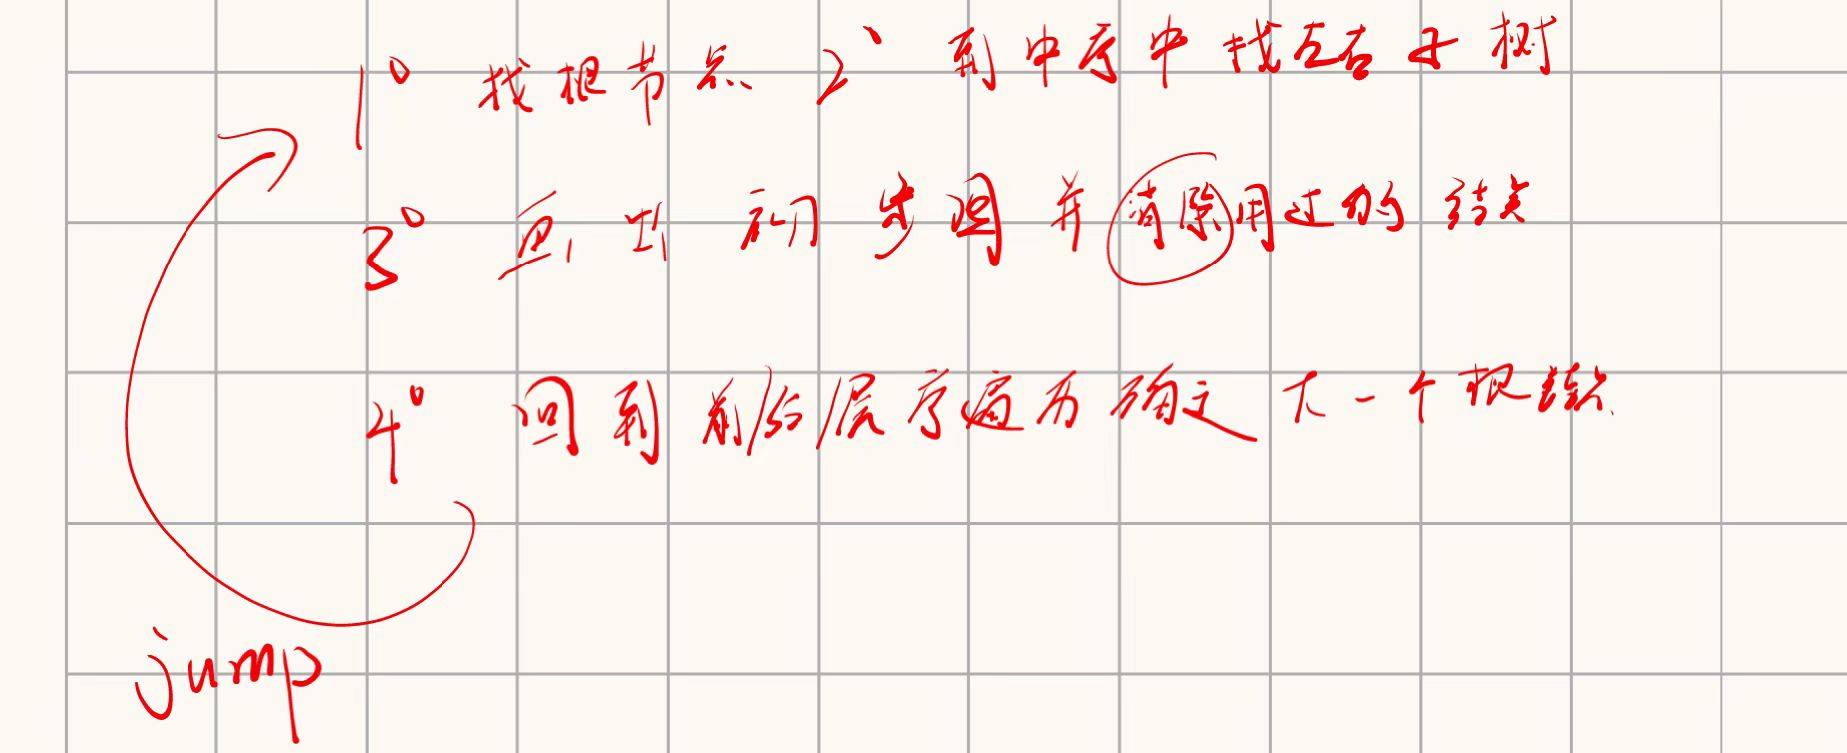 1° 找根节点 2° 到中序中找左右子树
3° 画出初步图并消除用过的结点
4° 回到前/后/层序遍历确定大一个根结点
jump